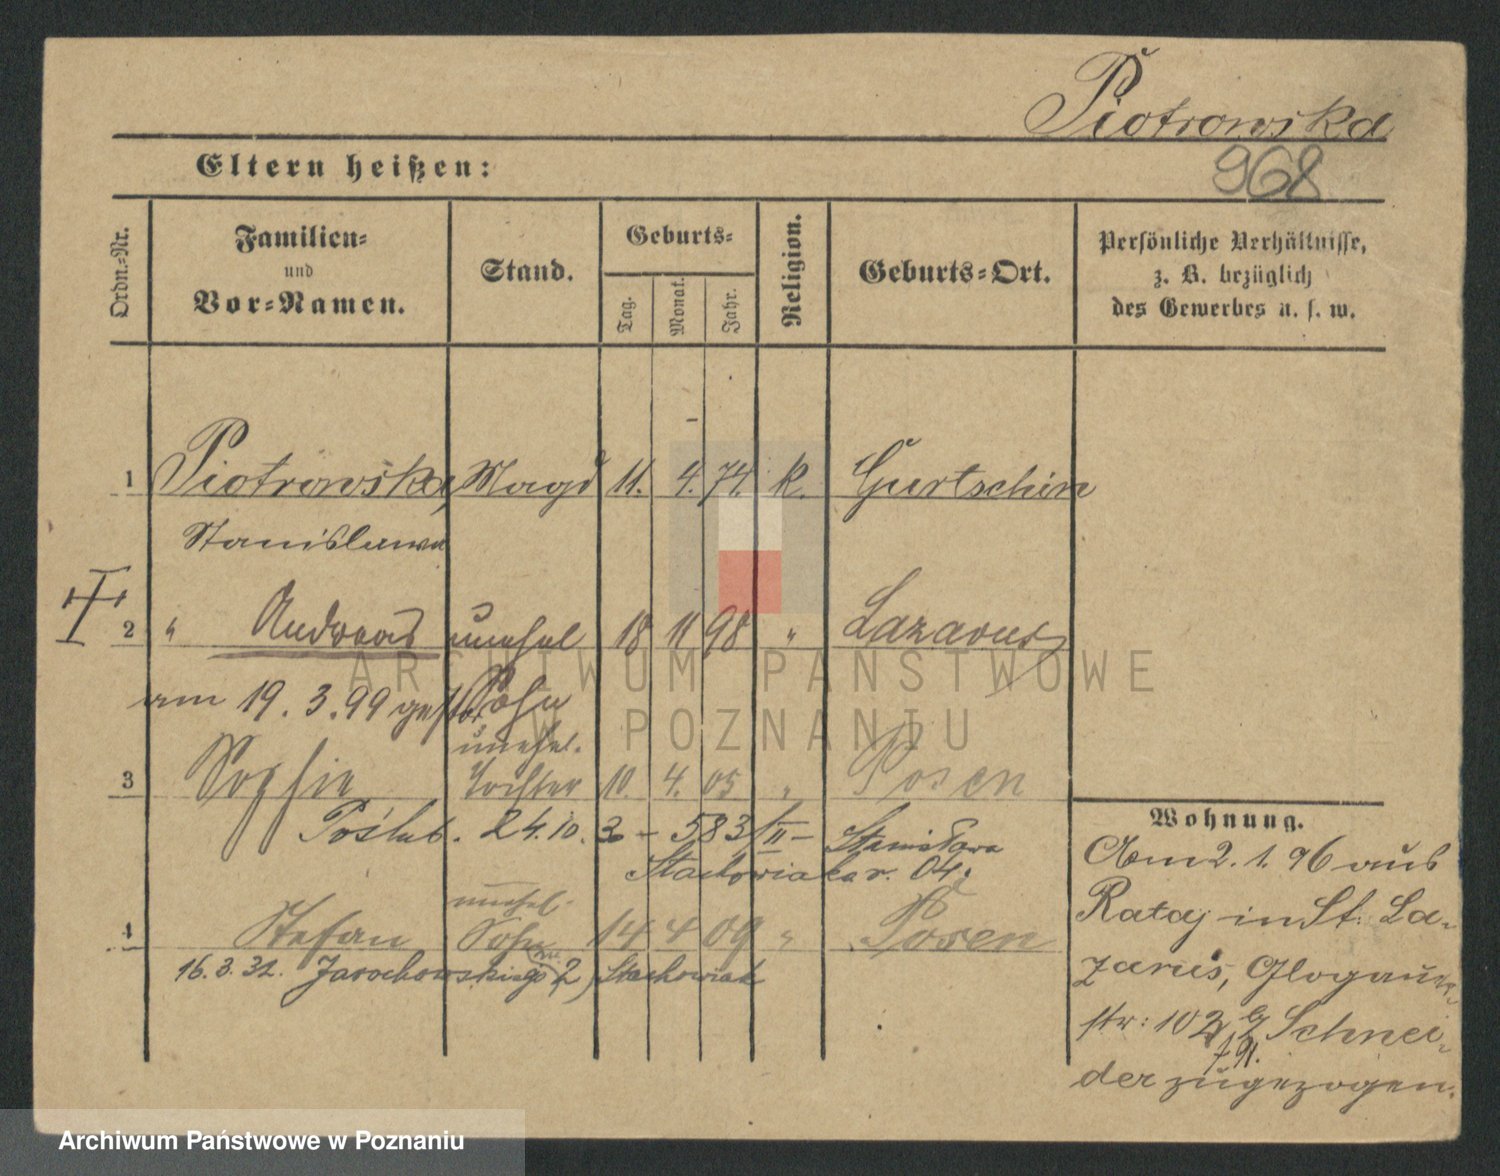 Piotrowska
968
Eltern heißen:
Ordn.-Nr.
Familien-
und
Vor-Namen.
Stand.
Geburts-
Tag.
Monat.
Jahr.
Religion.
Geburts-Ort.
Persönliche Verhältnisse,
z. B. bezüglich
des Gewerbes u. s. w.
1 Piotrowska, Magd 11. 4. 74. k. Gurtschin
Stanislawa
2 " Andreas unehel 18 11 98 " Lazarus
am 19. 3. 99 gestor Sohn
unehel.
3 Sophie Tochter 10. 4. 05 " Posen
Poślub. 24.10. 3 - 583/II - Stanisława
Stachowiaka r. 04.
unehel.
4 Stefan Sohn 14 4 09 " Posen
16.3.32. Jarochowskiego 2, Stachowiak
Wohnung.
Am 2. 1. 96 aus
Rataj in St. La-
zarus, Glogauer-
str: 102 b Schnei-
der zugezogen.
ARCHIWUM PAŃSTWOWE
W POZNANIU
Archiwum Państwowe w Poznaniu